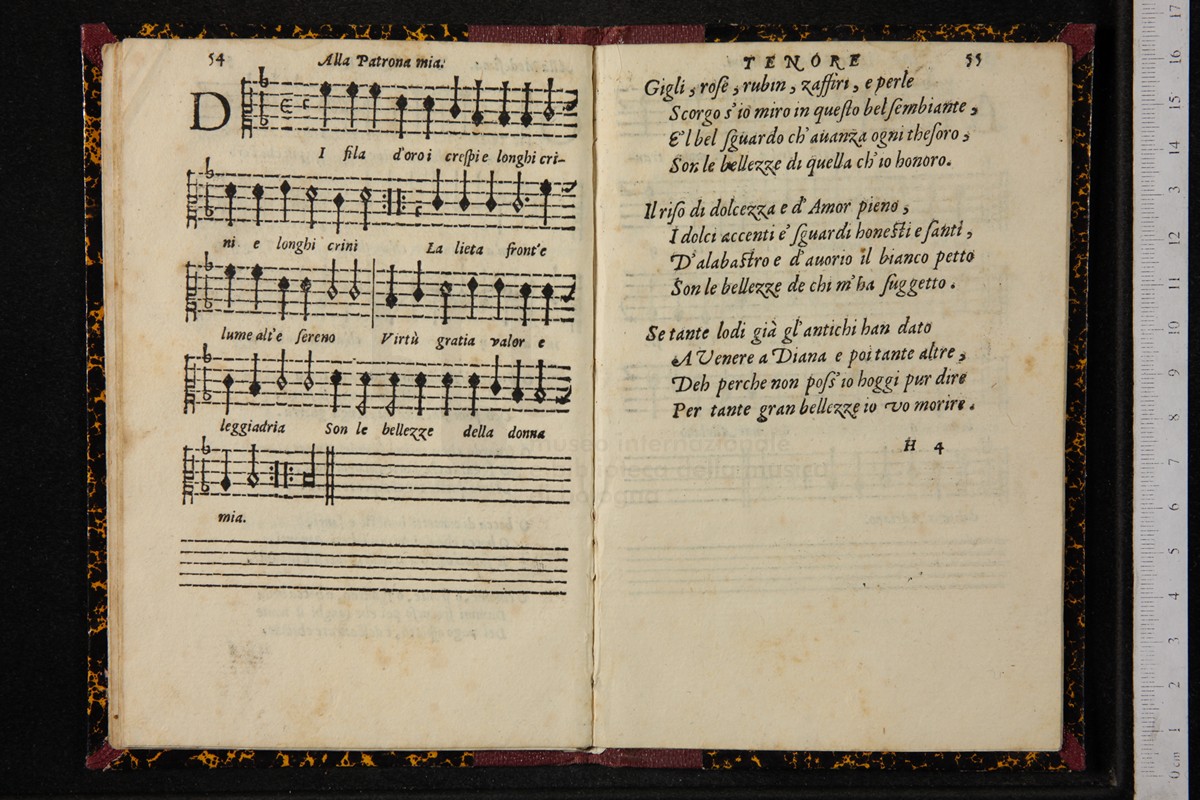 54
Alla Patrona mia.
D
I fila d'oro i crespi e longhi cri-
ni e longhi crini La lieta front'e
lume alt'e sereno Virtù gratia valor e
leggiadria Son le bellezze della donna
mia.
TENORE 55
Gigli, rose, rubin, zaffiri, e perle
Scorgo s'io miro in questo bel sembiante,
E'l bel sguardo ch'auanza ogni thesoro,
Son le bellezze di quella ch'io honoro.
Il riso di dolcezza e d'Amor pieno,
I dolci accenti e' sguardi honesti e santi,
D'alabastro e d'auorio il bianco petto
Son le bellezze de chi m'ha suggetto.
Se tante lodi già gl'antichi han dato
A Venere a Diana e poi tante altre,
Deh perche non poss'io hoggi pur dire
Per tante gran bellezze io vo morire.
H 4
museo internazionale
biblioteca della musica
17
16
15
14
13
12
11
10
9
8
7
6
5
4
3
2
1
0 cm